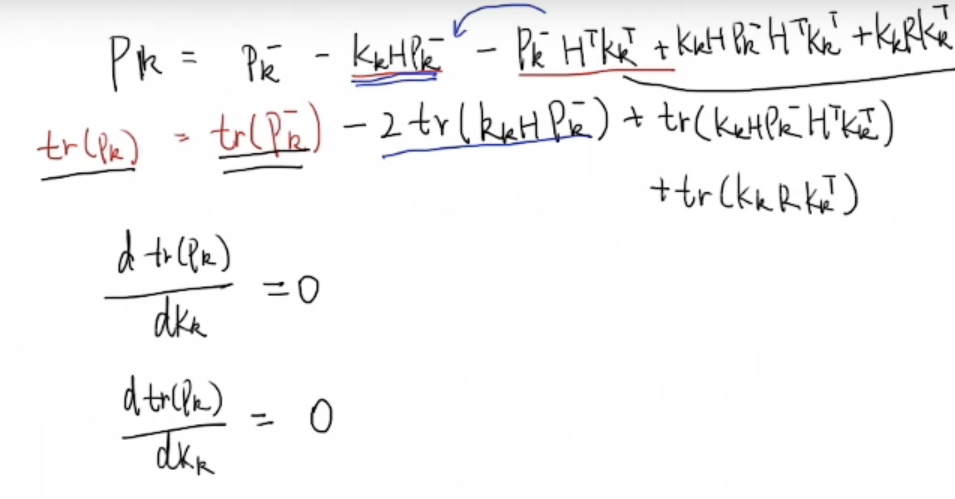 P_k = P_k^- - K_k H P_k^- - P_k^- H^T K_k^T + K_k H P_k^- H^T K_k^T + K_k R K_k^T
tr(P_k) = tr(P_k^-) - 2 tr(K_k H P_k^-) + tr(K_k H P_k^- H^T K_k^T)
+ tr(K_k R K_k^T)
d tr(P_k)
= 0
dK_k
d tr(P_k)
= 0
dK_k